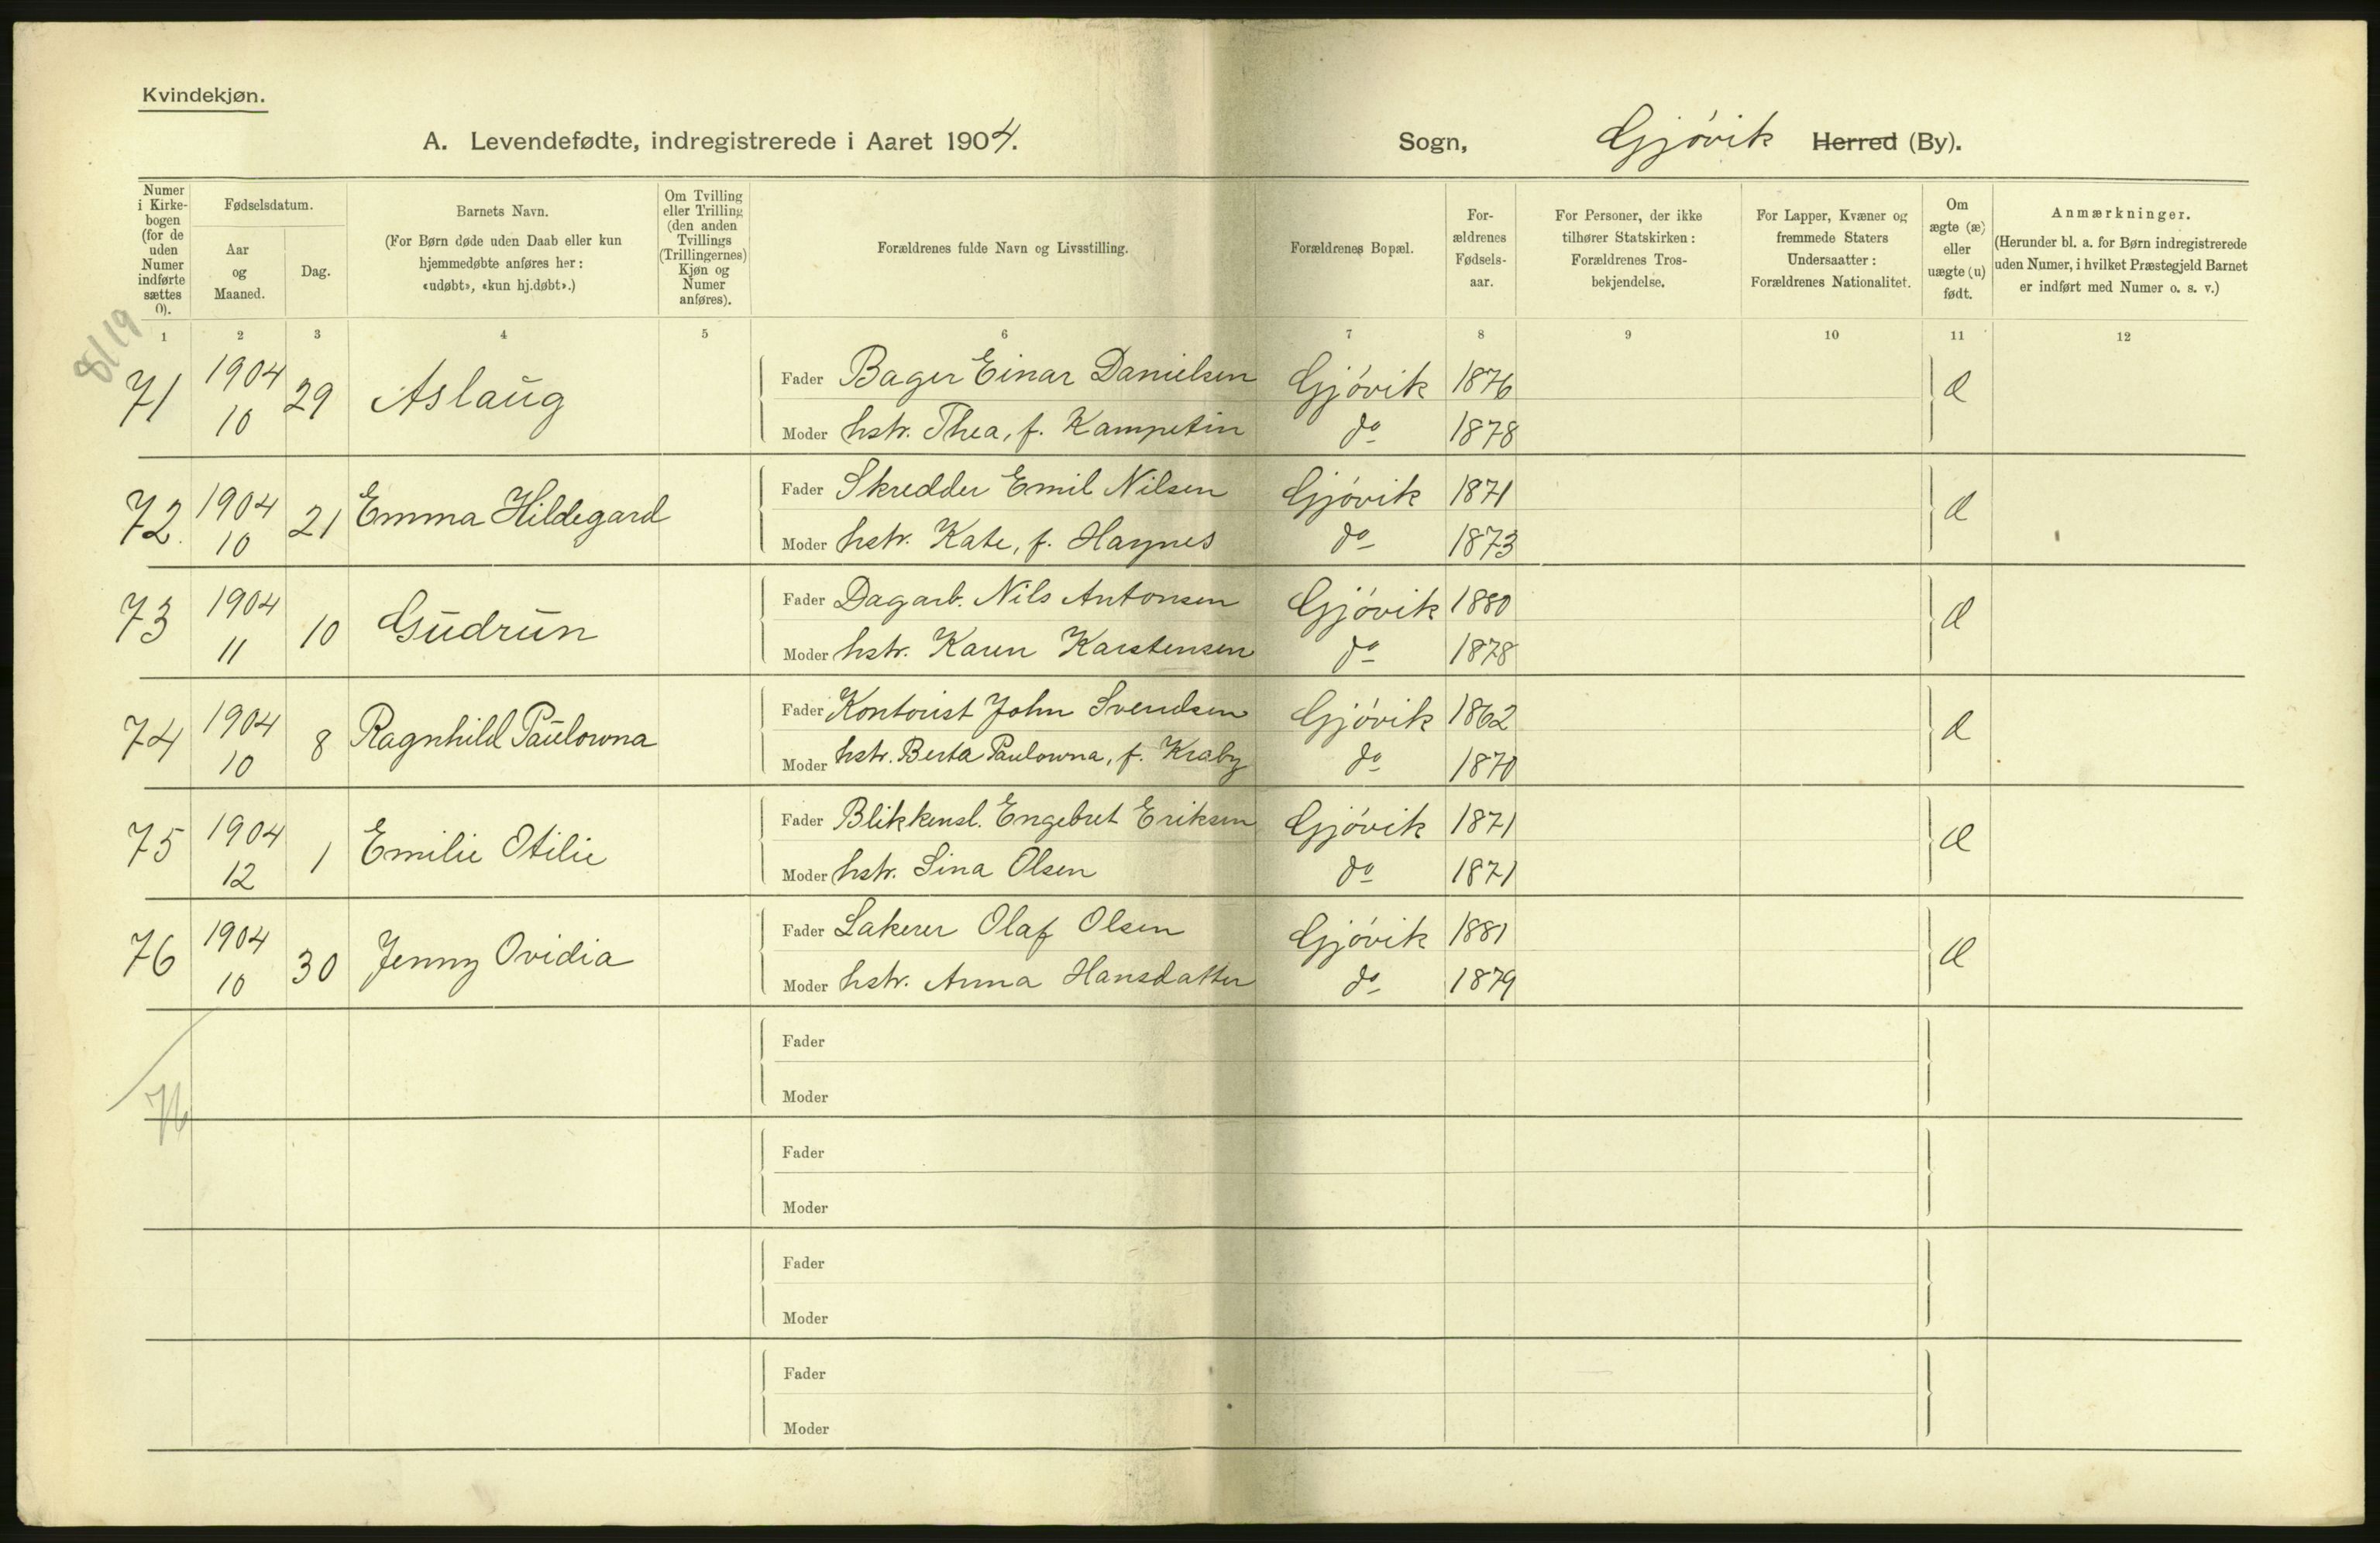 Kvindekjøn.
A. Levendefødte, indregistrerede i Aaret 1904.
Sogn, Gjøvik Herred (By).
Numer i Kirke-bogen (for de uden Numer indførte sættes 0).
Fødselsdatum.
Aar og Maaned.
Dag.
Barnets Navn.
(For Børn døde uden Daab eller kun hjemmedøbte anføres her: «udøbt», «kun hj.døbt».)
Om Tvilling eller Trilling (den anden Tvillings (Trillingernes) Kjøn og Numer anføres).
Forældrenes fulde Navn og Livsstilling.
Forældrenes Bopæl.
For-ældrenes Fødsels-aar.
For Personer, der ikke tilhører Statskirken: Forældrenes Tros-bekjendelse.
For Lapper, Kvæner og fremmede Staters Undersaatter: Forældrenes Nationalitet.
Om ægte (æ) eller uægte (u) født.
Anmærkninger.
(Herunder bl. a. for Børn indregistrerede uden Numer, i hvilket Præstegjeld Barnet er indført med Numer o. s. v.)
1 2 3 4 5 6 7 8 9 10 11 12
8/19
71 1904 10 29 Aslaug Fader Bager Einar Danielsen Gjøvik 1876 æ
Moder hstr. Thea, f. Kampetin do 1878
72. 1904 10 21 Emma Hildegard Fader Skredder Emil Nilsen Gjøvik 1871 æ
Moder hstr. Kate, f. Haynes do 1873
73 1904 11 10 Gudrun Fader Dagarb. Nils Antonsen Gjøvik 1880 æ
Moder hstr. Karen Karstensen do 1878
74 1904 10 8 Ragnhild Paulowna Fader Kontorist John Svendsen Gjøvik 1862 æ
Moder hstr. Berta Paulowna, f. Kraby do 1870
75 1904 12 1 Emilie Otilie Fader Blikkensl. Engebret Eriksen Gjøvik 1871 æ
Moder hstr. Lina Olsen do 1871
76 1904 10 30 Jenny Ovidia Fader Lakerer Olaf Olsen Gjøvik 1881 æ
Moder hstr. Anna Hansdatter do 1879
Fader
Moder
76
Fader
Moder
Fader
Moder
Fader
Moder